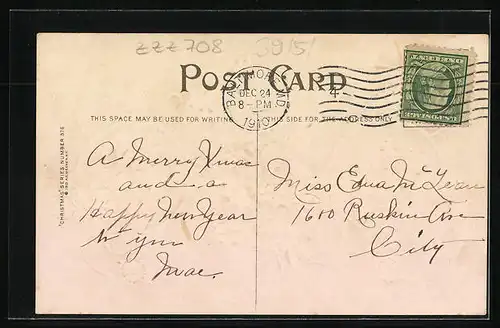 zzz 708
POST CARD
BALTIMORE, MD.
DEC 24
8-PM
4
THIS SPACE MAY BE USED FOR WRITING
THIS SIDE FOR THE ADDRESS ONLY
"CHRISTMAS" SERIES NUMBER
A Merry Xmas
and a
Happy New Year
to you
Mae.
Miss Edna McLean
1600 Ruskin Ave
City